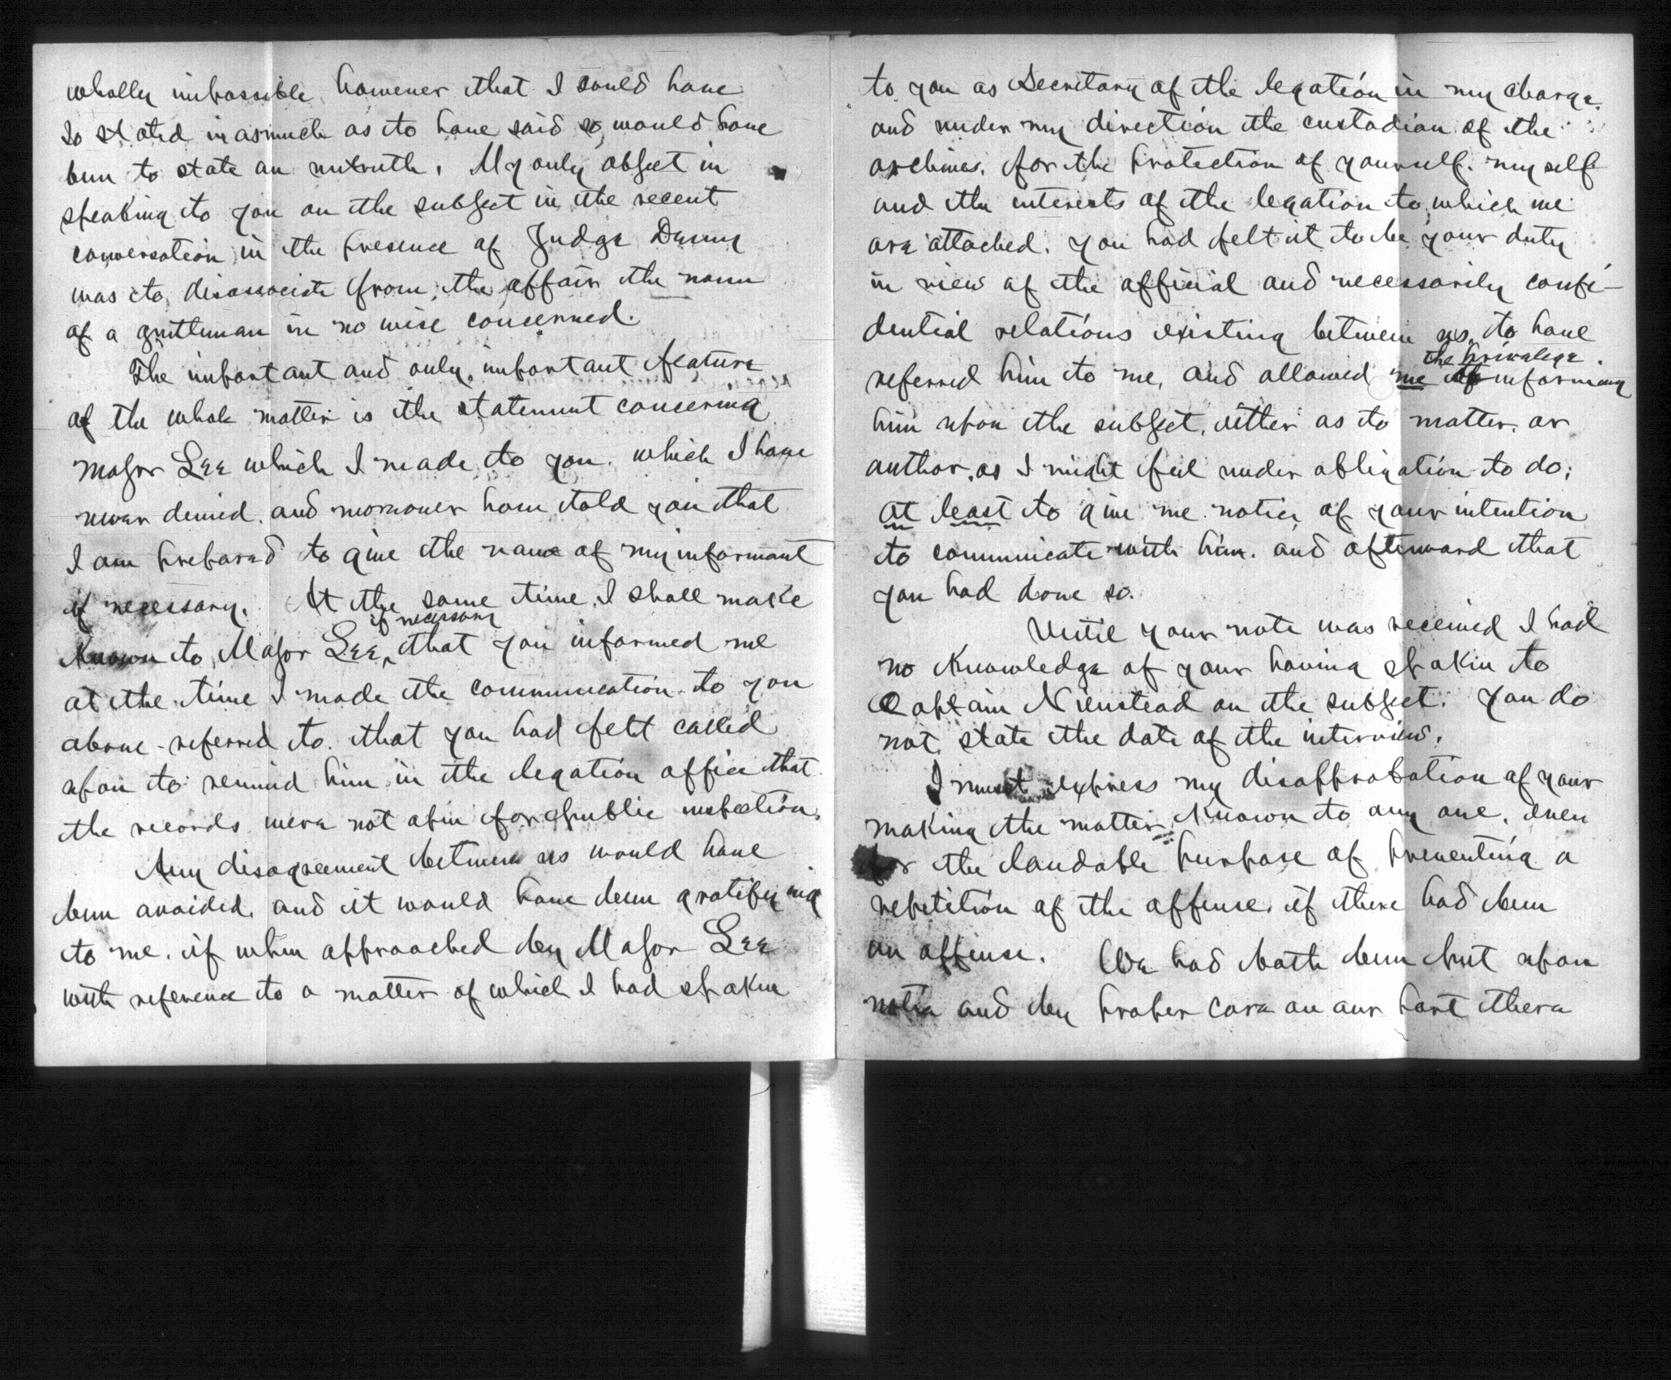 wholly impossible, however that I could have
so stated inasmuch as to have said so, would have
been to state an untruth. My only object in
speaking to you on the subject in the recent
conversation in the presence of Judge Denny
was to disassociate from the affair the name
of a gentleman in no wise concerned.
The important and only important feature
of the whole matter is the statement concerning
Major Lee which I made to you. which I have
never denied. and moreover have told you that
I am prepared to give the name of my informant
if necessary. At the same time, I shall make
if necessary
known to Major Lee, that you informed me
at the time I made the communication to you
above-referred to. that you had felt called
upon to remind him in the legation office that
the records were not open for public inspection.
Any disagreement between us would have
been avoided, and it would have been gratifying
to me. if when approached by Major Lee
with reference to a matter of which I had spoken
to you as Secretary of the legation in my charge
and under my direction the custodian of the
archives. for the protection of yourself. myself
and the interests of the legation to which we
are attached. you had felt it to be your duty
in view of the official and necessarily confi-
dential relations existing between us, to have
the privilege.
referred him to me, and allowed me of informing
him upon the subject, either as to matter. or
author, as I might feel under obligation to do;
at least to give me notice of your intention
to communicate with him. and afterward that
you had done so.
Until your note was received I had
no knowledge of your having spoken to
Captain Nienstead on the subject. You do
not state the date of the interview.
I must express my disapprobation of your
making the matter known to any one, even
for the laudable purpose of preventing a
repetition of the offense. if there had been
an offense. We had both been put upon
notice and by proper care on our part there